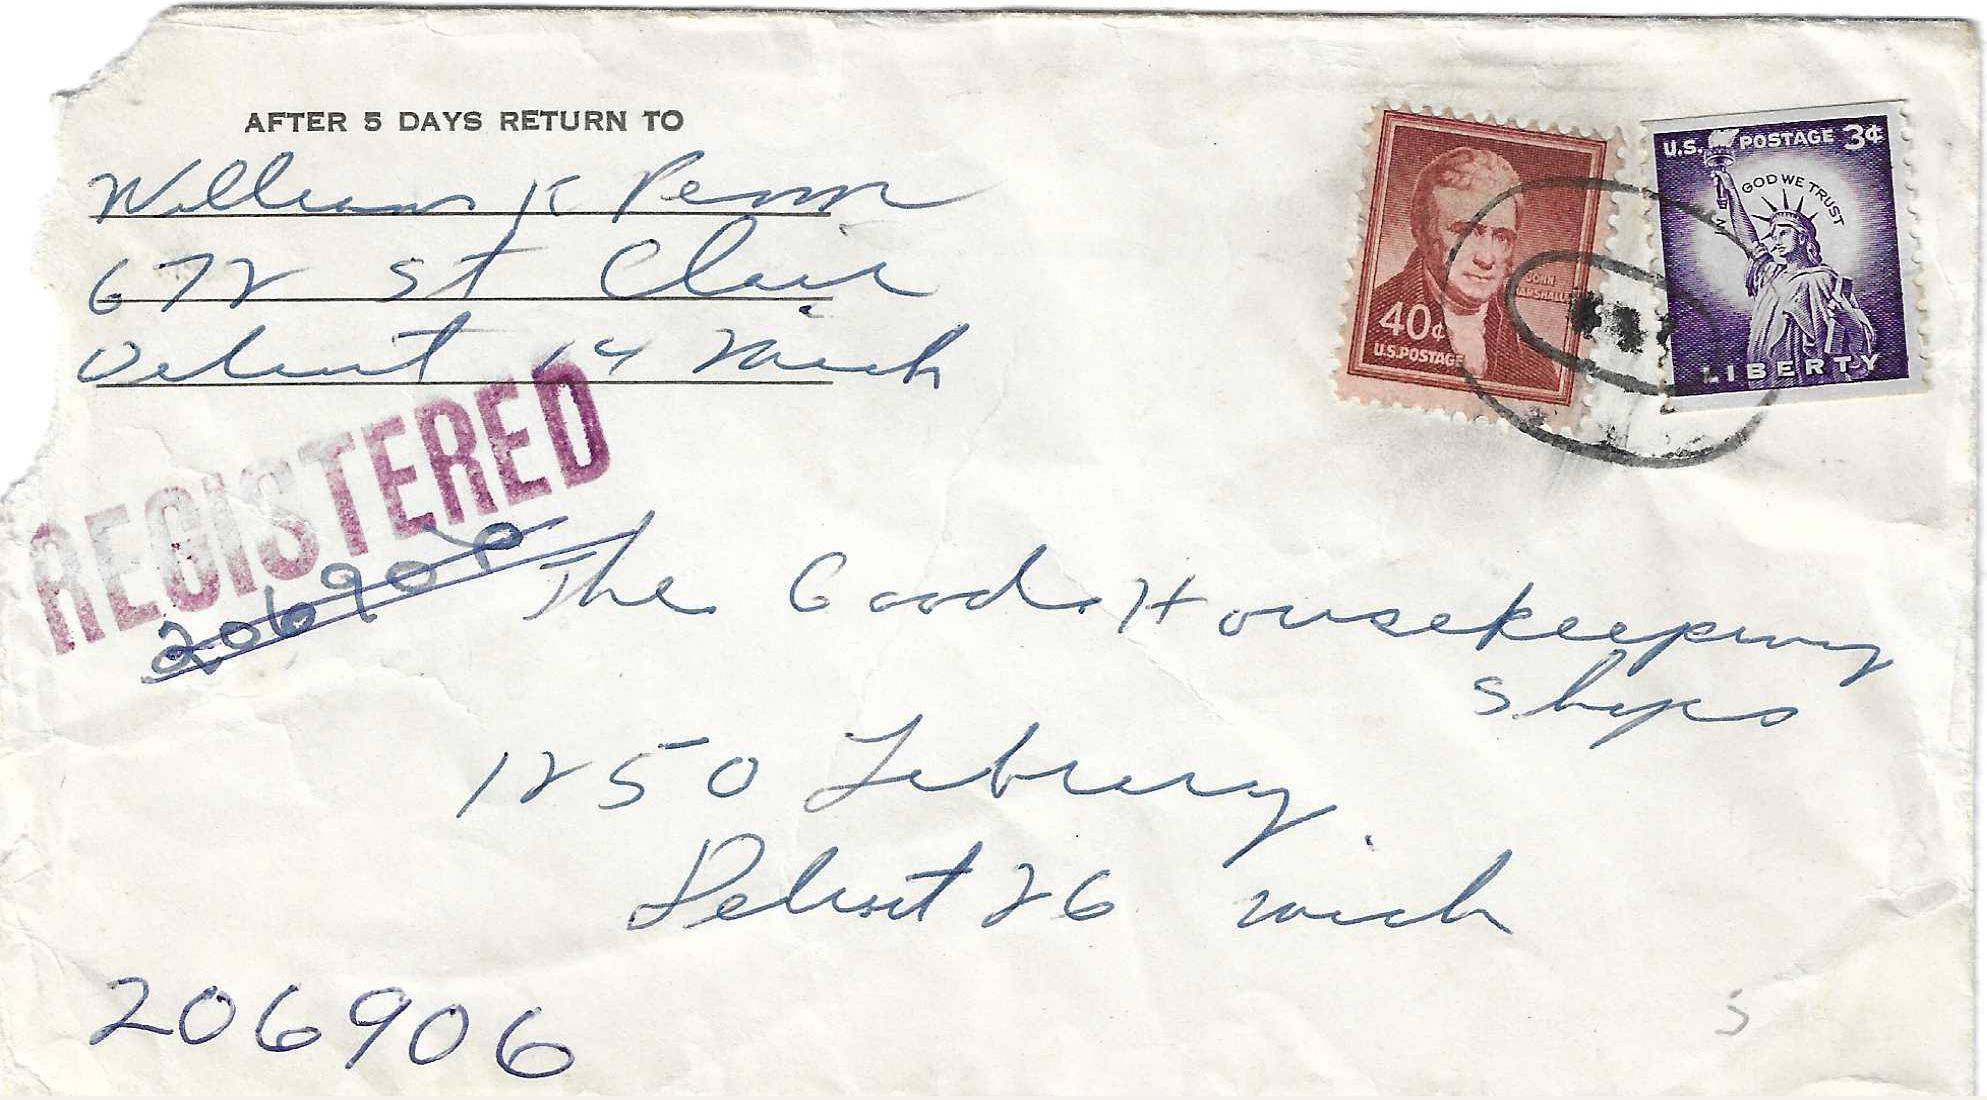 AFTER 5 DAYS RETURN TO
William K Penn
672 St Clair
Detroit 14 Mich
REGISTERED
The Good Housekeeping
Shops
1250 Library
Detroit 26 Mich
206906
S
40¢
U.S. POSTAGE
JOHN
MARSHALL
U.S. POSTAGE 3¢
IN GOD WE TRUST
LIBERTY